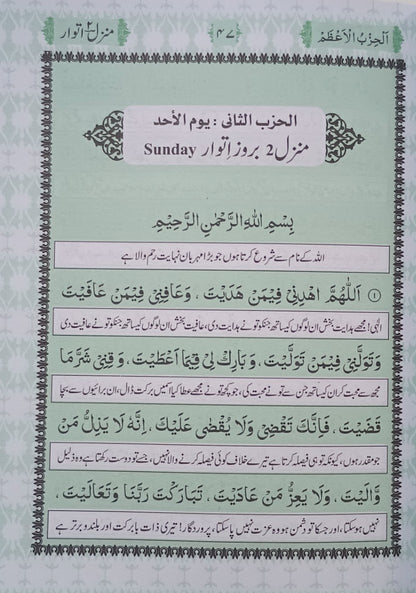 اَلْحِزْبُ الْاَعْظَمْ ۴۷ منزل ۲ اتوار
الحزب الثانی : یوم الأحد
منزل 2 بروز اتوار Sunday
بِسْمِ اللهِ الرَّحْمٰنِ الرَّحِیْمِ
اللہ کے نام سے شروع کرتا ہوں جو بڑا مہربان نہایت رحم والا ہے
۱ اَللّٰهُمَّ اهْدِنِیْ فِیْمَنْ هَدَیْتَ ، وَعَافِنِیْ فِیْمَنْ عَافَیْتَ
الٰہی! مجھے ہدایت بخش ان لوگوں کیساتھ جنکو تو نے ہدایت دی، عافیت بخش ان لوگوں کیساتھ جنکو تو نے عافیت دی
وَتَوَلَّنِیْ فِیْمَنْ تَوَلَّیْتَ ، وَبَارِكْ لِیْ فِیْمَا اَعْطَیْتَ ، وَقِنِیْ شَرَّ مَا
مجھ سے محبت کر ان کیساتھ جن سے تو نے محبت کی، جو کچھ تو نے مجھے عطا کیا اسمیں برکت ڈال، ان برائیوں سے بچا
قَضَیْتَ ، فَاِنَّكَ تَقْضِیْ وَلَا یُقْضٰی عَلَیْكَ ، اِنَّهٗ لَا یَذِلُّ مَنْ
جو مقدر ہوں، کیونکہ تو ہی فیصلہ کرتا ہے تیرے خلاف کوئی فیصلہ کرنے والا نہیں، جسے تو دوست رکھتا ہے وہ ذلیل
وَّالَیْتَ ، وَلَا یَعِزُّ مَنْ عَادَیْتَ ، تَبَارَكْتَ رَبَّنَا وَتَعَالَیْتَ ،
نہیں ہو سکتا، اور جسکا تو دشمن ہو وہ عزت نہیں پا سکتا، پروردگار! تیری ذات بابرکت اور بلند و برتر ہے